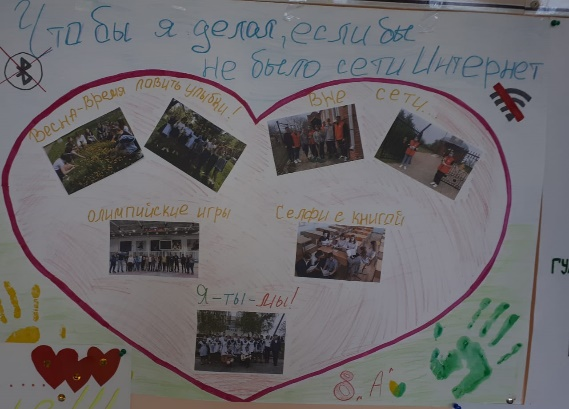 Что бы я делал, если бы
не было сети Интернет
Весна-время ловить улыбки!
Вне сети.
Олимпийские игры
Селфи с книгой
Я-ты-мы!
8 „А"